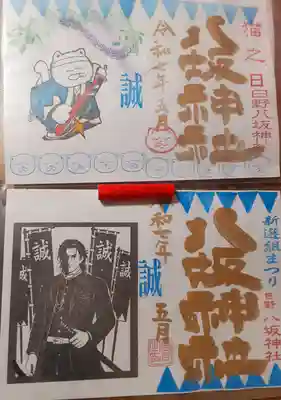 猫之日
日野八坂神社
八坂神社
令和七年五月
誠
新選組まつり
日野
八坂神社
八坂神社
令和七年
五月
誠
誠
誠
誠